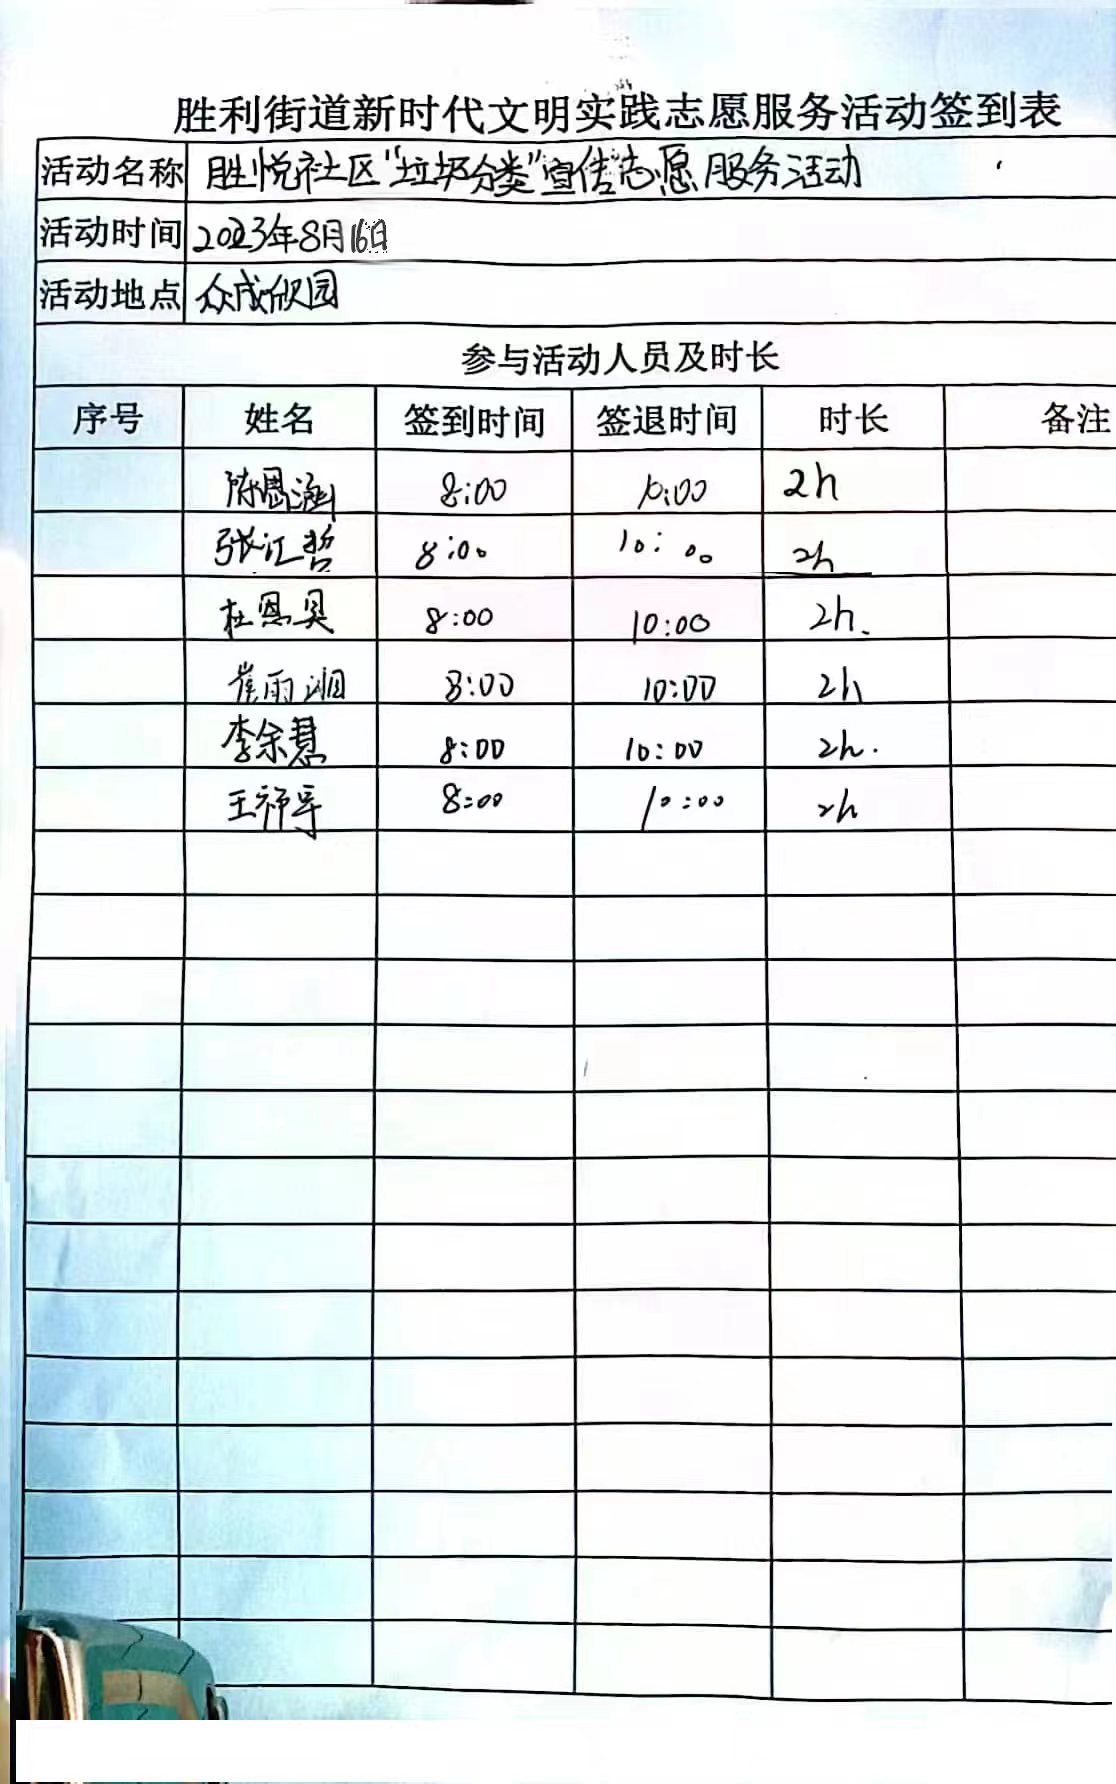 胜利街道新时代文明实践志愿服务活动签到表
活动名称 胜悦社区“垃圾分类”宣传志愿服务活动
活动时间 2023年8月16日
活动地点 众成欣园
参与活动人员及时长
序号 姓名 签到时间 签退时间 时长 备注
陈思涵 8:00 10:00 2h
张汇哲 8:00 10:00 2h
杜恩贝 8:00 10:00 2h.
崔雨湘 8:00 10:00 2h
李余慧 8:00 10:00 2h.
王 8:00 10:00 2h